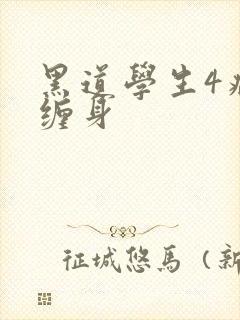 黑道學生4
缠身
征城悠馬（新